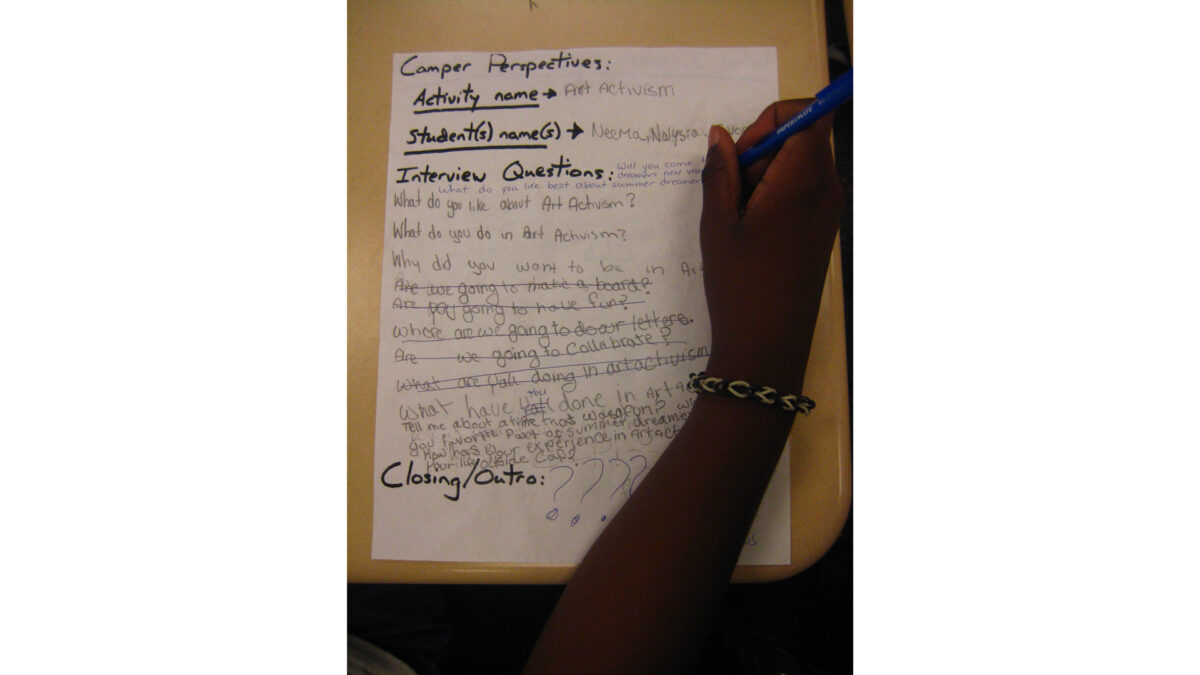 Camper Perspectives:
Activity name → Art Activism
Student(s) name(s) → Neema, Nalysia
PAPERMATE
Interview Questions: Will you come
dreamers next year
What do you like best about summer dreamers
What do you like about Art Activism?
What do you do in Art Activism?
Why did you want to be in Art
Are we going to make a board?
Are going to have fun?
Where are we going to do our letters.
Are we going to collabrate?
What are yall doing in art activism
you
What have yall done in Art Ac
Tell me about a time that was fun?
you favorite part of summer dreamer
How has your experience in Art Act
your life outside
Closing/Outro: ????